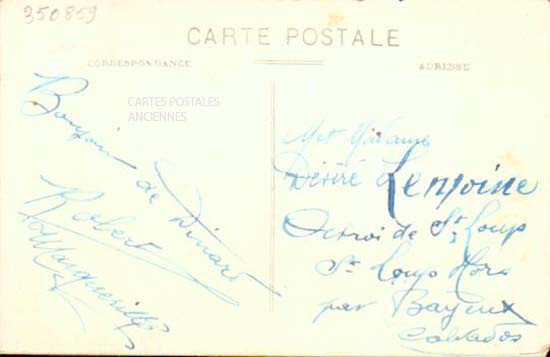 350859
CARTE POSTALE
CORRESPONDANCE
ADRESSE
CARTES POSTALES
ANCIENNES
Bonjour de Dinard
Robert
Mr et Madame
Désiré Lemoine
Octroi de St Loup
St Loup Hors
par Bayeux
Calvados